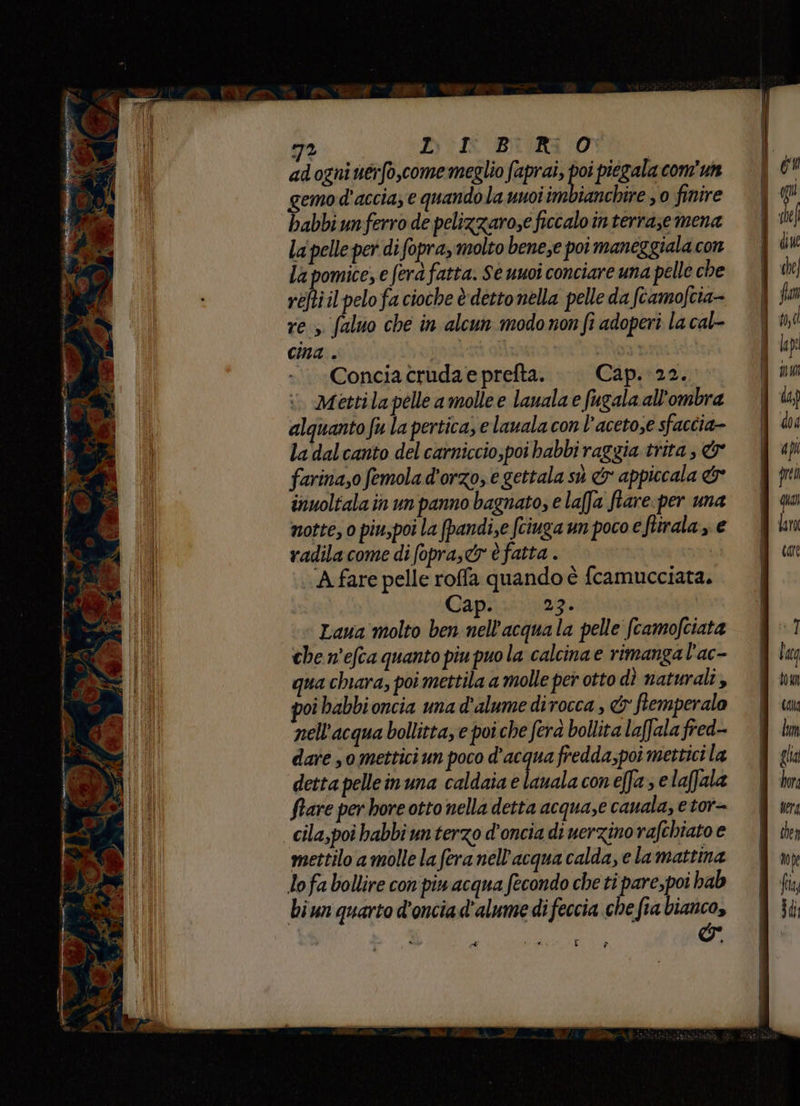 72 LIBRO
ad ogni uerso,come meglio ſaprai, poi piegala com'un
gemo d'accia, e quando la uuoi imbianchire , o finire
habbi un ferro de pelizzaro,e ficcalo in terra,e mena
la pelle per di ſopra, molto bene,e poi maneggiala con
la pomice, e ſerà fatta. Se uuoi conciare una pelle che
reſti il pelo fa cioche è detto nella pelle da ſcamoſcia-
re , ſaluo che in alcun modo non ſi adoperi la cal-
cina .
Concia cruda e preſta. Cap. 22.
Metti la pelle a molle e lauala e ſugala all'ombra
alquanto ſu la pertica, e lauala con l'aceto,e sfaccia-
la dal canto del carniccio,poi habbi raggia trita , &
farina,o ſemola d'orzo, e gettala sù & appiccala &
inuoltala in un panno bagnato, e laſſa ſtare per una
notte, o piu,poi la ſpandi,e ſciuga un poco e ſtirala , e
radila come di ſopra,& è fatta .
A fare pelle roſſa quando è ſcamucciata.
Cap. 23.
Laua molto ben nell'acqua la pelle ſcamoſciata
che n'eſca quanto piu puo la calcina e rimanga l'ac-
qua chiara, poi mettila a molle per otto dì naturali ,
poi habbi oncia una d'alume di rocca , & ſtemperalo
nell'acqua bollitta, e poi che ſerà bollita laſſala fred-
dare , o mettici un poco d'acqua fredda,poi mettici la
detta pelle in una caldaia e lauala con eſſa , e laſſala
ſtare per hore otto nella detta acqua,e cauala, e tor-
cila,poi habbi un terzo d'oncia di uerzino raſchiato e
mettilo a molle la ſera nell'acqua calda, e la mattina
lo fa bollire con piu acqua ſecondo che ti pare,poi hab
bi un quarto d'oncia d'alume di feccia che ſia bianco,
&